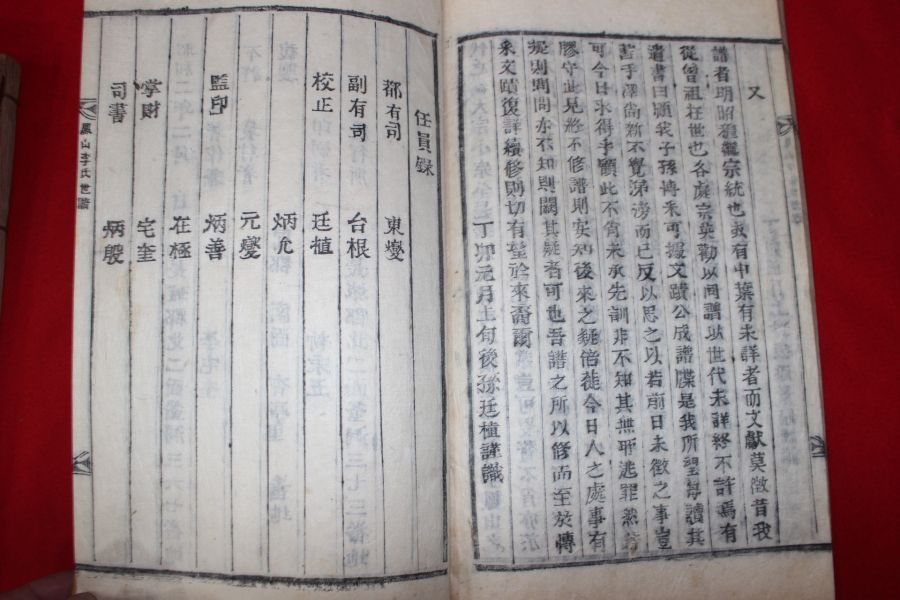 又
譜者明昭穆繼宗統也我有中葉有未詳者而文獻莫徵昔我
從曾祖在世也各處宗葉勸以同譜以世代未詳終不許焉有
遺書曰願我子孫博采可據文蹟公成譜牒是我所望每讀其
書手澤尚新不覺涕滂而已反以思之以若前日未徵之事豈
可今日求得乎顧此不肖未承先訓非不知其無所逃罪然若
膠守此見終不修譜則安知後來之疑倍徙今日人之處事有
疑則問問亦不知則闕其疑者可也吾譜之所以修而至於傳
來文蹟復詳續修則切有望於來裔爾
丁卯元月上旬後孫廷植謹識
任員錄
都有司 東燮
副有司 台根
校正 廷植
炳允
元燮
監印 炳善
在極
掌財 宅奎
司書 炳殷
鳳山李氏世譜